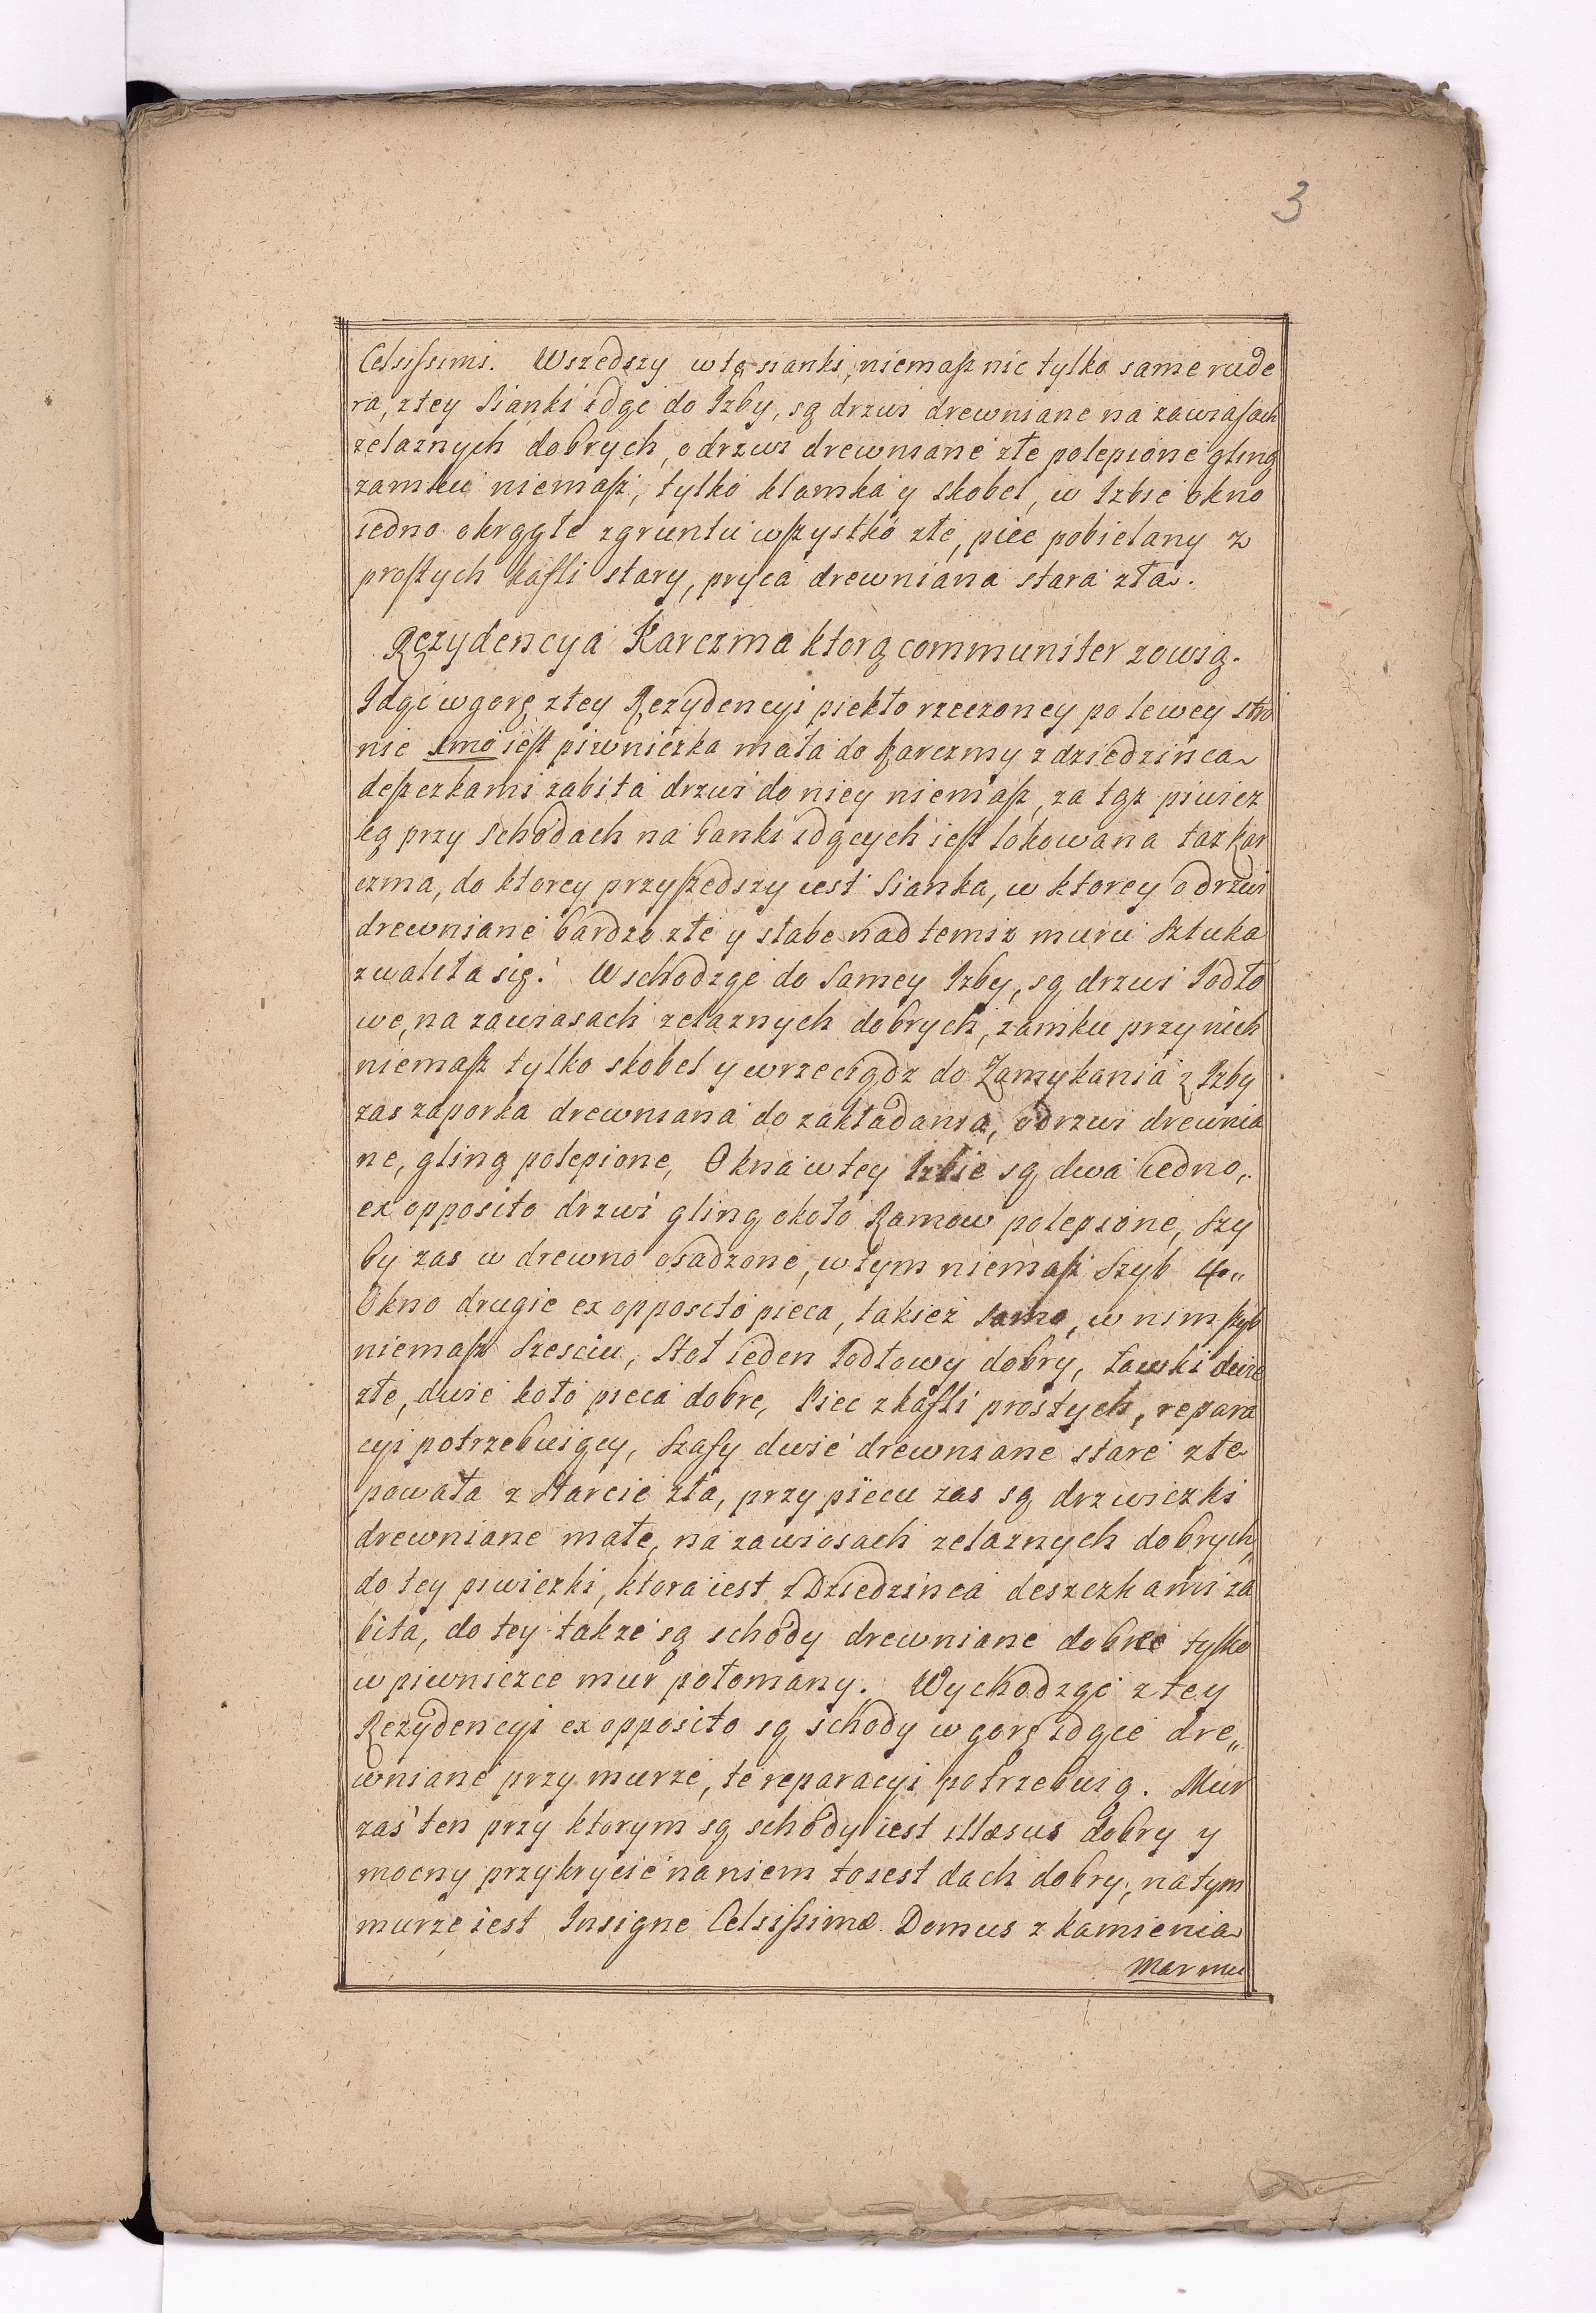 3
Celsissimi. Wszedszy w tę sianki, niemasz nic tylko same rude
ra, z tey Sianki idąc do Izby, są drzwi drewniane na zawiasach
zelaznych dobrych, odrzwi drewniane złe polepione gliną
zamku niemasz, tylko klamka y skobel, w Izbie okno
iedno okrągłe zgruntu wszystko złe, piec pobielany z
prostych kafli stary, pryca drewniana stara zła.
Rezydencya Karczma ktorą communiter zowią.
Idąc w gorę z tey Rezydencyi piekło rzeczoney po lewey stro
nie imo iest piwniczka mała do Karczmy z dziedzinca
deszczkami zabita drzwi do niey niemasz, za tąż piwicz
ką przy Schodach na Ganki idących iest lokowana taz Kar
czma, do ktorey przyszedszy iest Sianka, w ktorey odrzwi
drewniane bardzo złe y słabe nad temiz muru Sztuka
zwaliła się. Wschodząc do Samey Izby, są drzwi Jodło
we, na zawiasach zelaznych dobrych, zamku przy nich
niemasz tylko skobel y wrzeciądz do Zamykania z Izby
zas zaporka drewniana do zakładania, odrzwi drewnia
ne, gliną polepione, Okna w tey Izbie są dwa iedno,
ex opposito drzwi gliną około Ramow polepione, Szy
by zas w drewno osadzone, w tym niemasz Szyb 4„
Okno drugie ex opposito pieca, takiez samo, w nim szyb
niemasz Szesciu, Stoł ieden Jodłowy dobry, Ławki dwie
złe, dwie koło pieca dobre, Piec z kafli prostych, repara
cyi potrzebuiący, Szafy dwie drewniane stare złe
powała z Starcic zła, przy piecu zas są drzwiczki
drewniane małe, na zawiosach zelaznych dobrych,
do tey piwiczki, ktora iest z Dziedzinca deszczkami za
bita, do tey takze są schody drewniane dobre tylko
w piwniczce mur połomany. Wychodząc z tey
Rezydencyi ex opposito są schody w gorę idące dre„
wniane przy murze, te reparacyi potrzebuią. Mur
zas ten przy ktorym są schody iest illæsus dobry y
mocny przykrycie na niem to iest dach dobry, na tym
murze iest Insigne Celsissimæ Domus z kamienia
Marmu